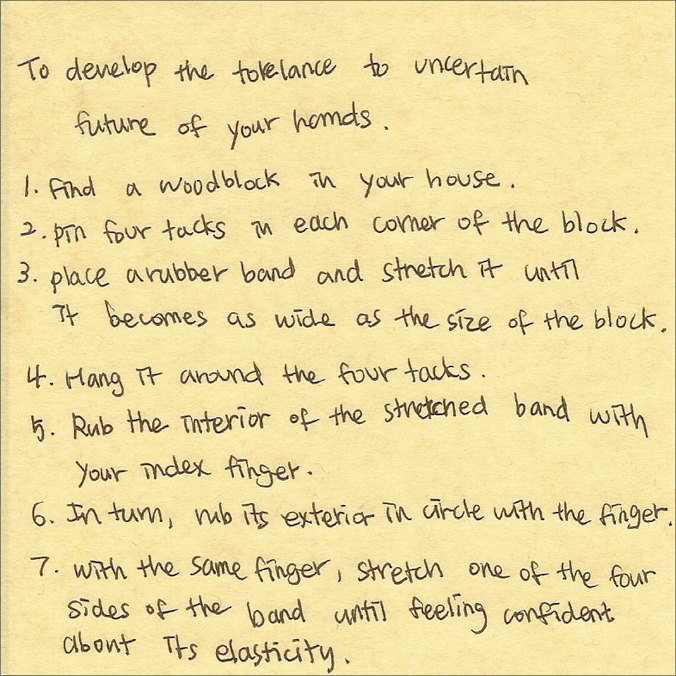 To develop the tolelance to uncertain
future of your hands.
1. Find a woodblock in your house.
2. pin four tacks in each corner of the block.
3. place a rubber band and stretch it until
it becomes as wide as the size of the block.
4. Hang it around the four tacks.
5. Rub the interior of the stretched band with
your index finger.
6. In turn, rub its exterior in circle with the finger.
7. with the same finger, stretch one of the four
sides of the band until feeling confident
about its elasticity.